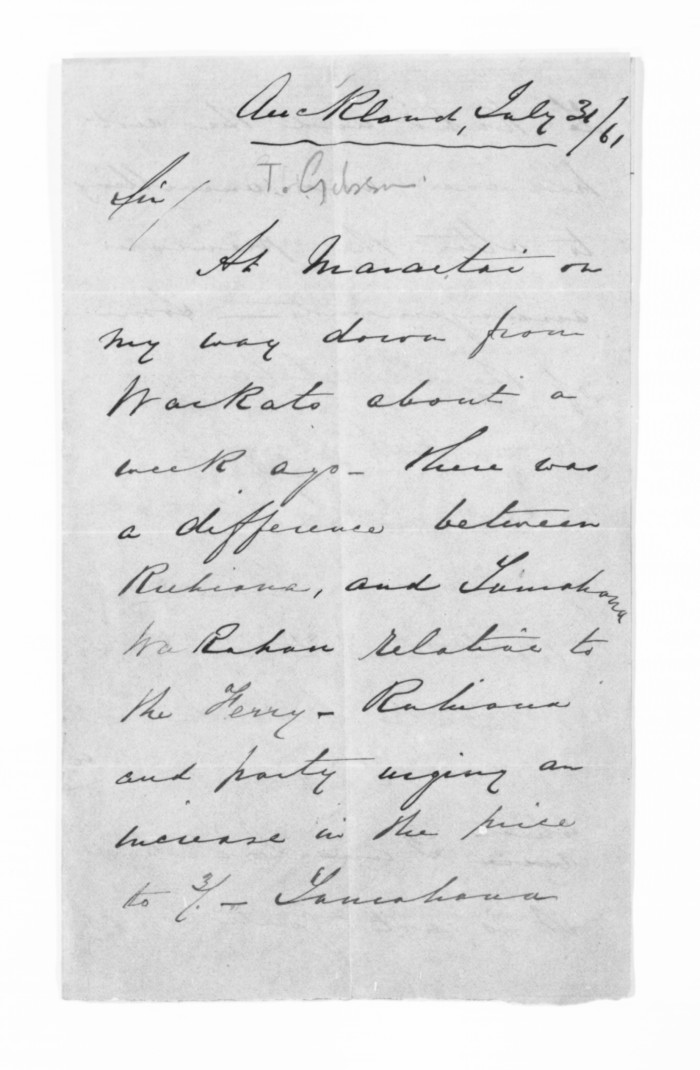 Auckland, July 31/61
T. Gibson.
Sir/
At Maraetai on
my way down from
Waikato about a
week ago - there was
a difference between
Rukiana, and Tamahana
relative to
the Ferry - Rukiana
and party urging an
increase in the price
to 3/. - Tamahana